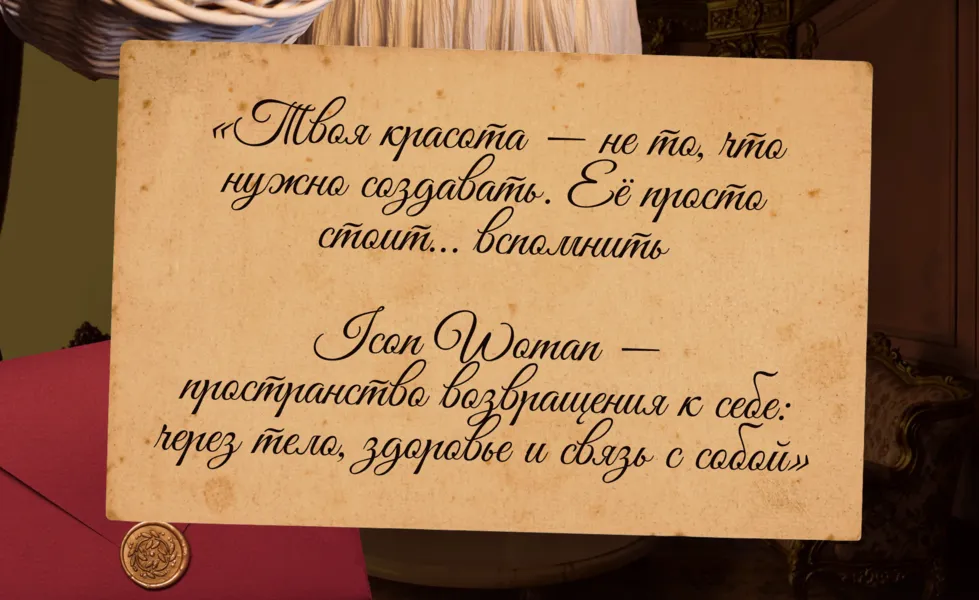 «Твоя красота — не то, что
нужно создавать. Её просто
стоит... вспомнить
Icon Woman —
пространство возвращения к себе:
через тело, здоровье и связь с собой»